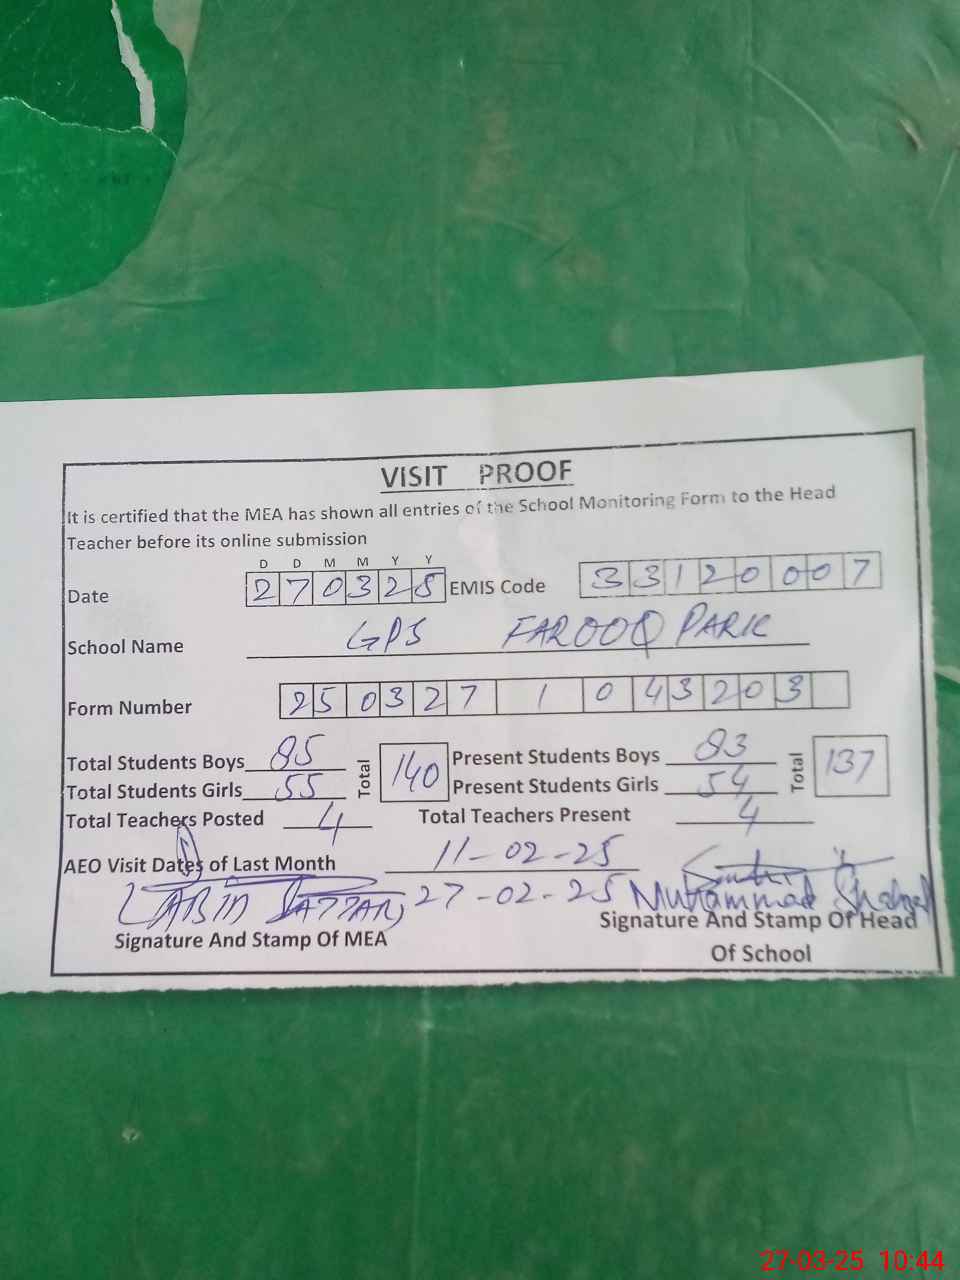 VISIT PROOF
It is certified that the MEA has shown all entries of the School Monitoring Form to the Head
Teacher before its online submission
D D M M Y Y
Date 270325 EMIS Code 33120007
School Name GPS FAROOQ PARK
Form Number 250327 1 043203
Total Students Boys 85 Total 140 Present Students Boys 83 Total 137
Total Students Girls 55 Present Students Girls 54
Total Teachers Posted 4 Total Teachers Present 4
AEO Visit Dates of Last Month 11-02-25
27-02-25 Muhammad
Signature And Stamp Of MEA Signature And Stamp Of Head
Of School
27-03-25 10:44